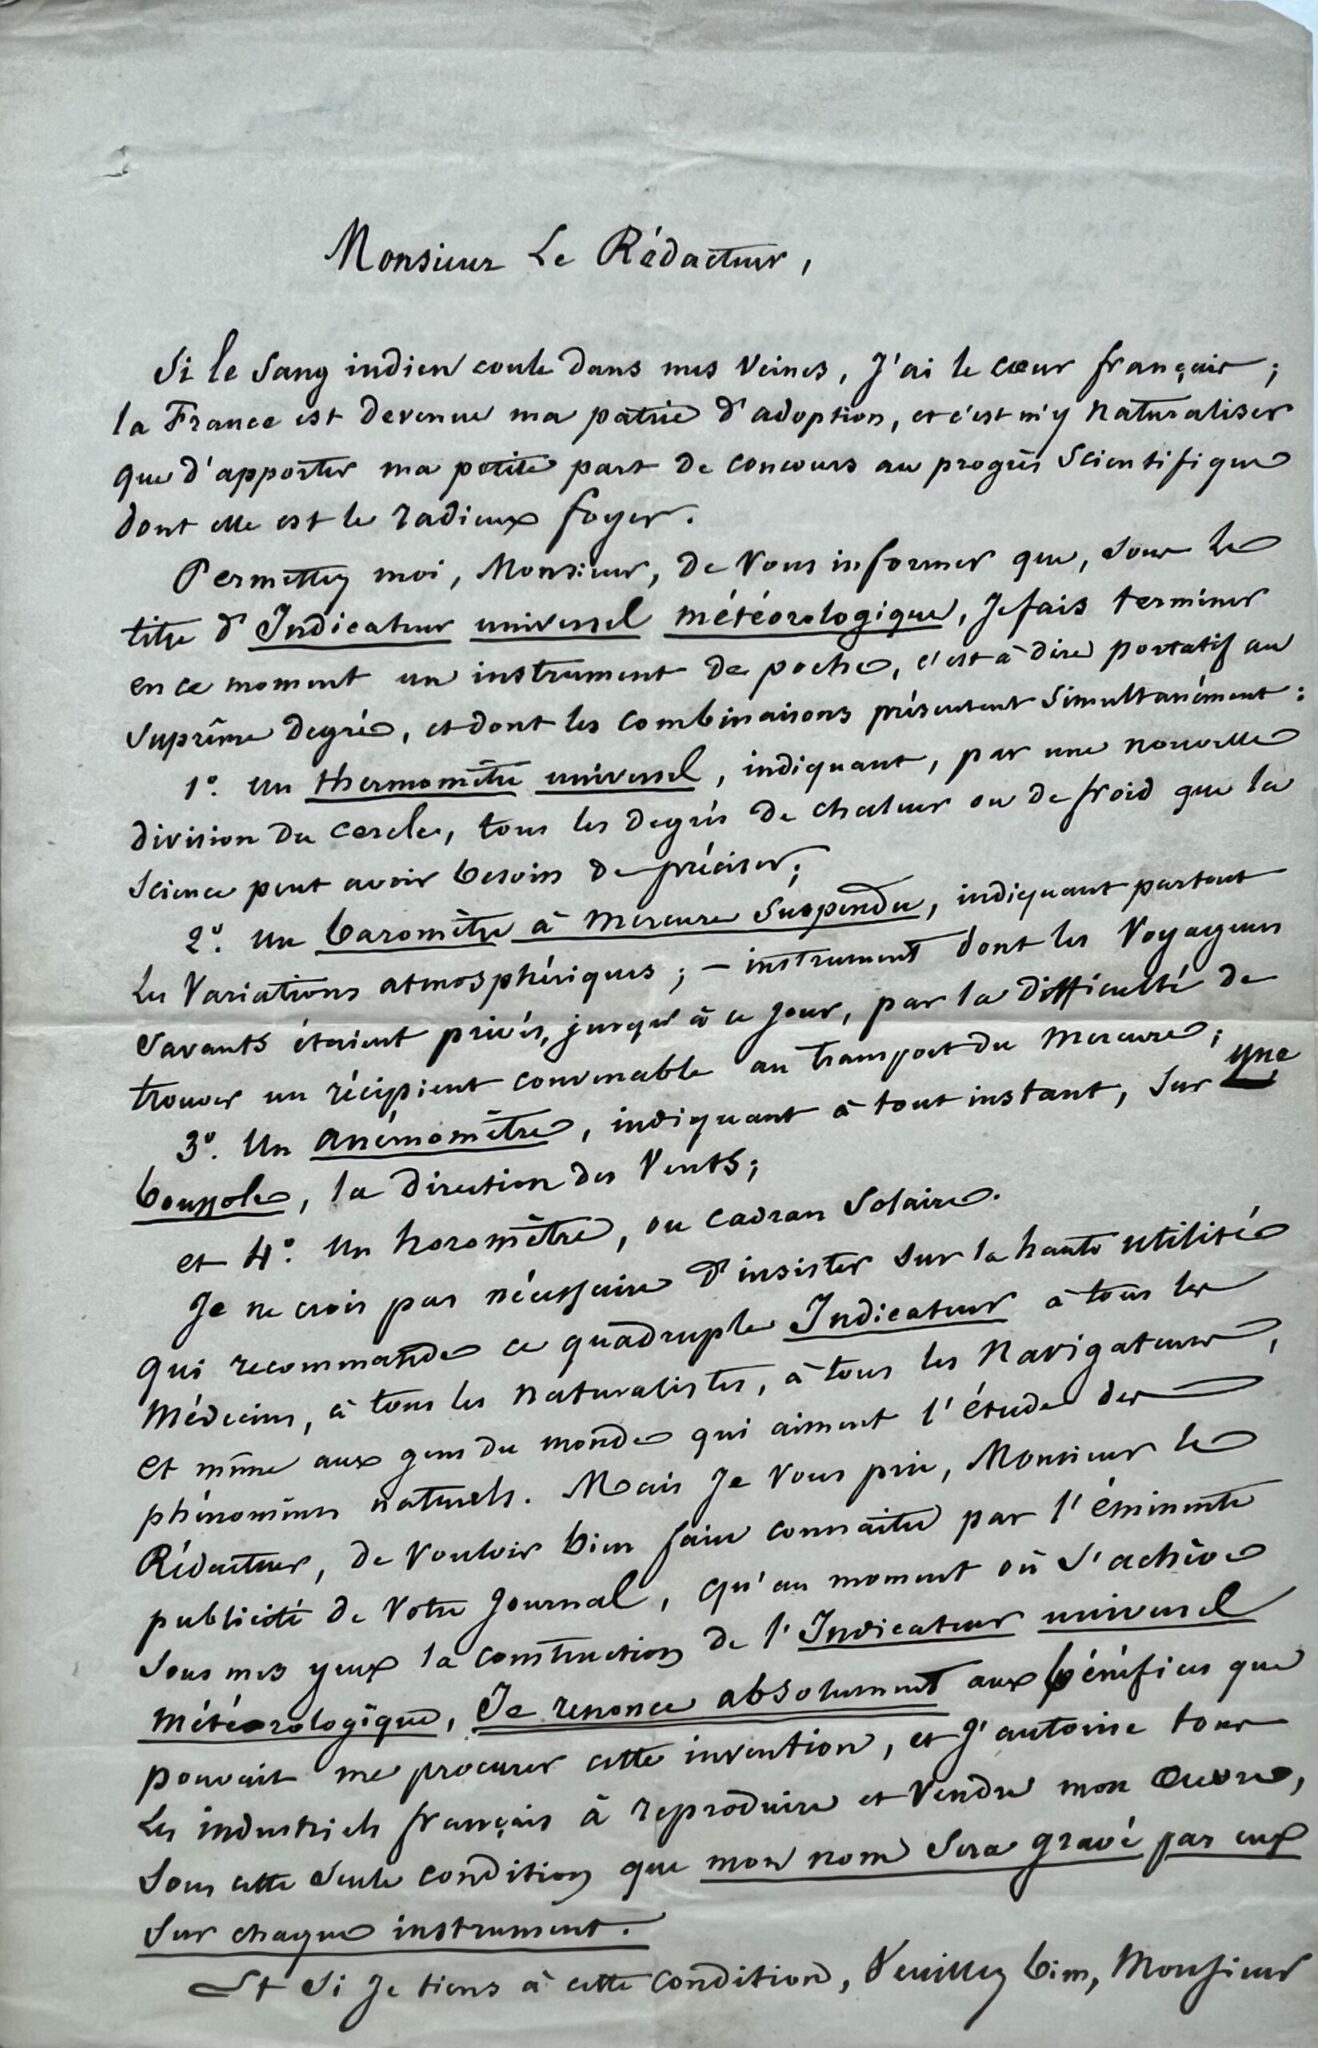 Monsieur Le Rédacteur,
Si le Sang indien coule dans mes Veines, J'ai le cœur français;
la France est devenue ma patrie d'adoption, et c'est m'y naturaliser
que d'apporter ma petite part de concours au progrès Scientifique
dont elle est le radieux foyer.
Permettez moi, Monsieur, de Vous informer que, Sous le
titre d'Indicateur universel météorologique, Je fais terminer
en ce moment un instrument de poche, c'est à dire portatif au
Suprême degré, et dont les Combinaisons présentent Simultanément:
1º. Un thermomètre universel, indiquant, par une nouvelle
division du cercle, tous les degrés de chaleur ou de froid que la
Science peut avoir besoin de préciser;
2º. un baromètre à mercure Suspendu, indiquant partout
les Variations atmosphériques; – instrument dont les Voyageurs
Savants étaient privés, jusqu'à ce jour, par la difficulté de
trouver un récipient convenable au transport du Mercure;
3º. Un anémomètre, indiquant à tout instant, Sur une
boussole, la direction des Vents;
et 4º. Un horomètre, ou cadran Solaire.
Je ne crois pas nécessaire d'insister Sur la haute utilité
qui recommande ce quadruple Indicateur à tous les
Médecins, à tous les naturalistes, à tous les navigateurs,
et même aux gens du monde qui aiment l'étude des
phénomènes naturels. Mais Je Vous prie, Monsieur le
Rédacteur, de Vouloir bien faire connaître par l'éminente
publicité de Votre Journal, qu'au moment où S'achève
Sous mes yeux la construction de l'Indicateur universel
météorologique, Je renonce absolument aux bénéfices que
pouvait me procurer cette invention, et J'autorise tous
les industriels français à reproduire et Vendre mon Œuvre,
Sous cette Seule condition que mon nom Sera gravé par eux
Sur chaque instrument.
Et Si Je tiens à cette condition, Veuillez bien, Monsieur